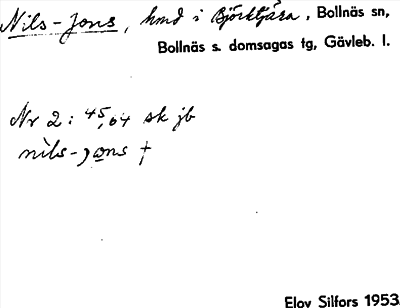 Nils-Jons, hmd i Björktjära, Bollnäs sn,
Bollnäs s. domsagas tg, Gävleb. l.
Nr 2: 45,64 sk jb
nìls-jɑns †
Elov Silfors 1953